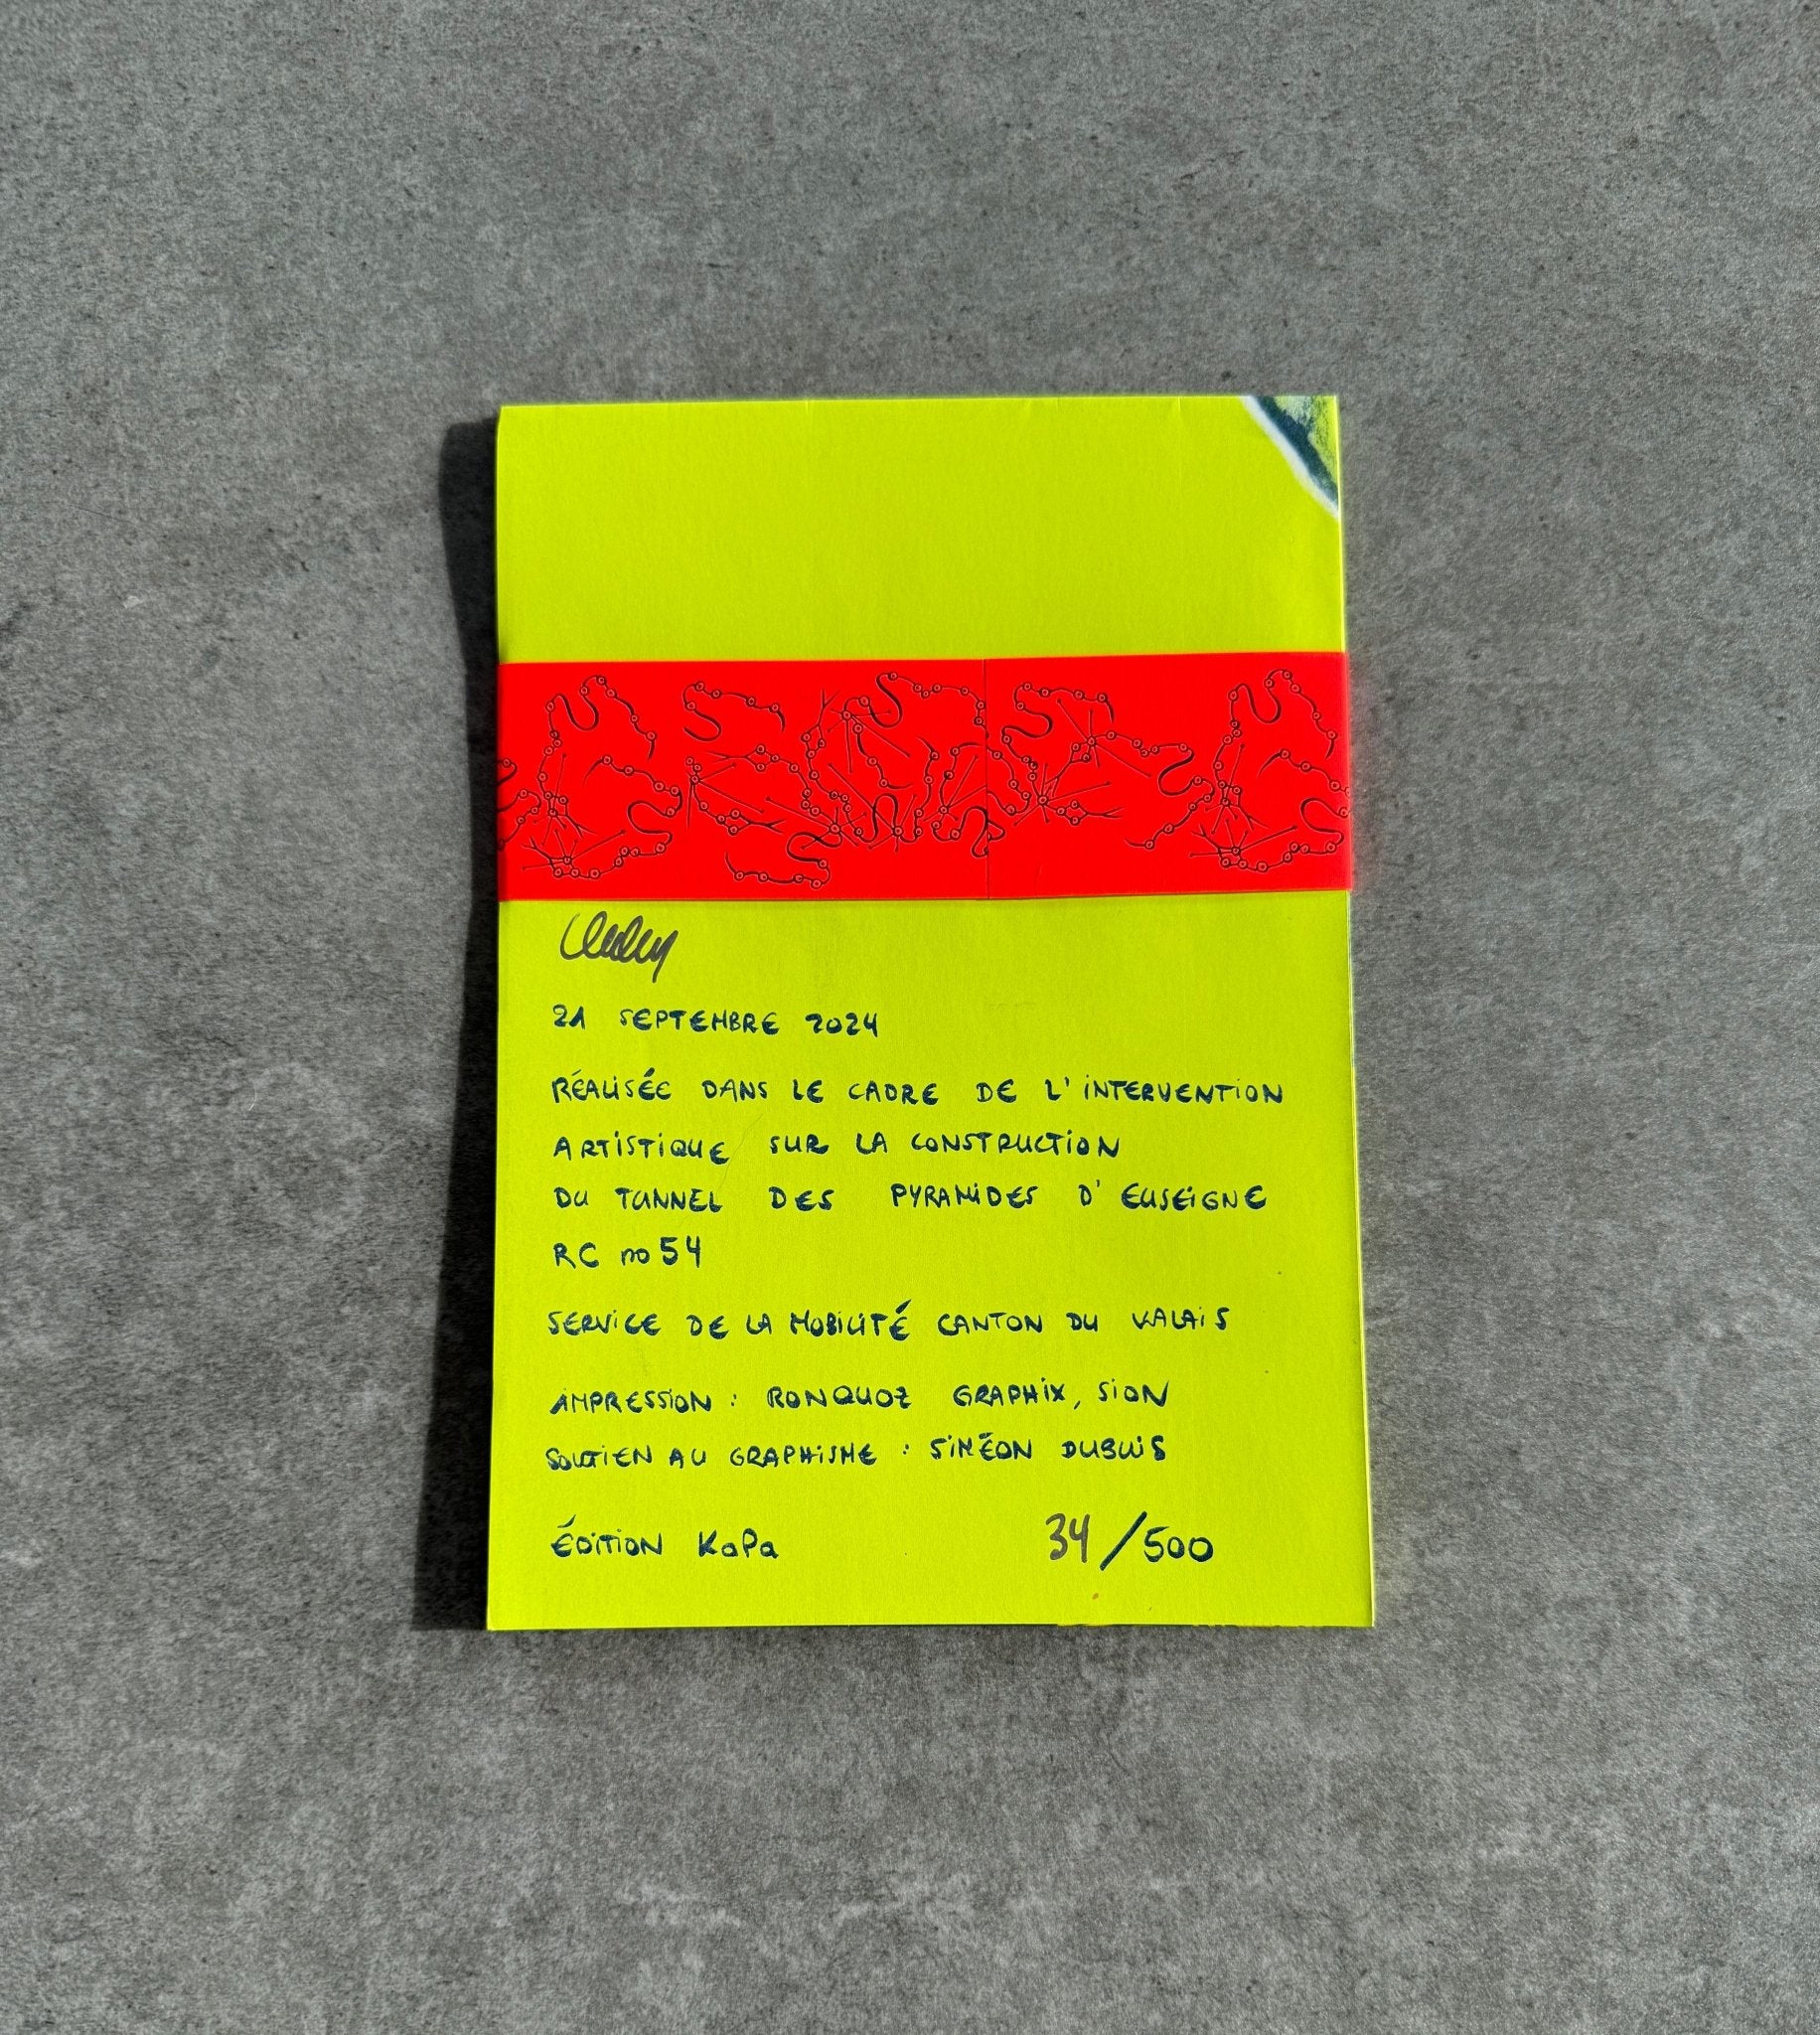 21 SEPTEMBRE 2024
RÉALISÉE DANS LE CADRE DE L'INTERVENTION
ARTISTIQUE SUR LA CONSTRUCTION
DU TUNNEL DES PYRAMIDES D'EUSEIGNE
RC no 54
SERVICE DE LA MOBILITÉ CANTON DU VALAIS
IMPRESSION : RONQUOZ GRAPHIX, SION
SOUTIEN AU GRAPHISME : SIMÉON DUBUIS
ÉDITION KaPa 34/500